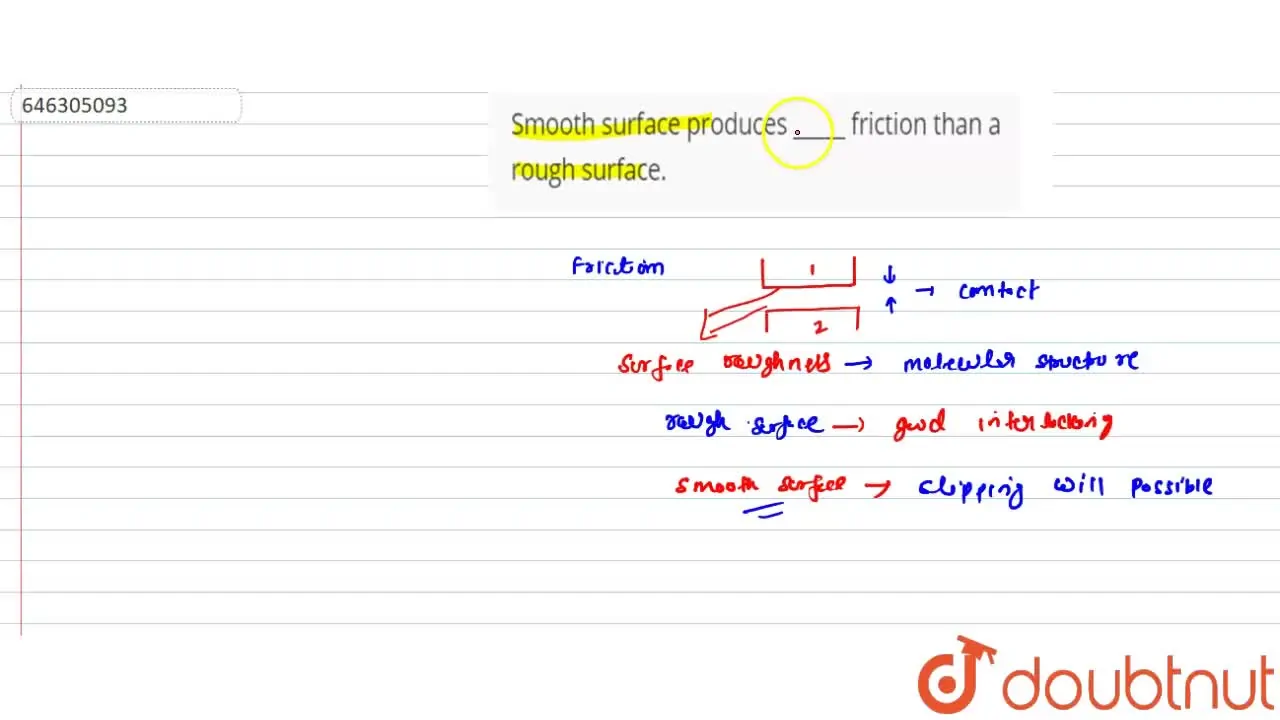 646305093
Smooth surface produces _____ friction than a
rough surface.
Friction
1
2
→ contact
surface roughness → molecular structure
rough surface → good interlocking
smooth surface → clipping will possible
doubtnut